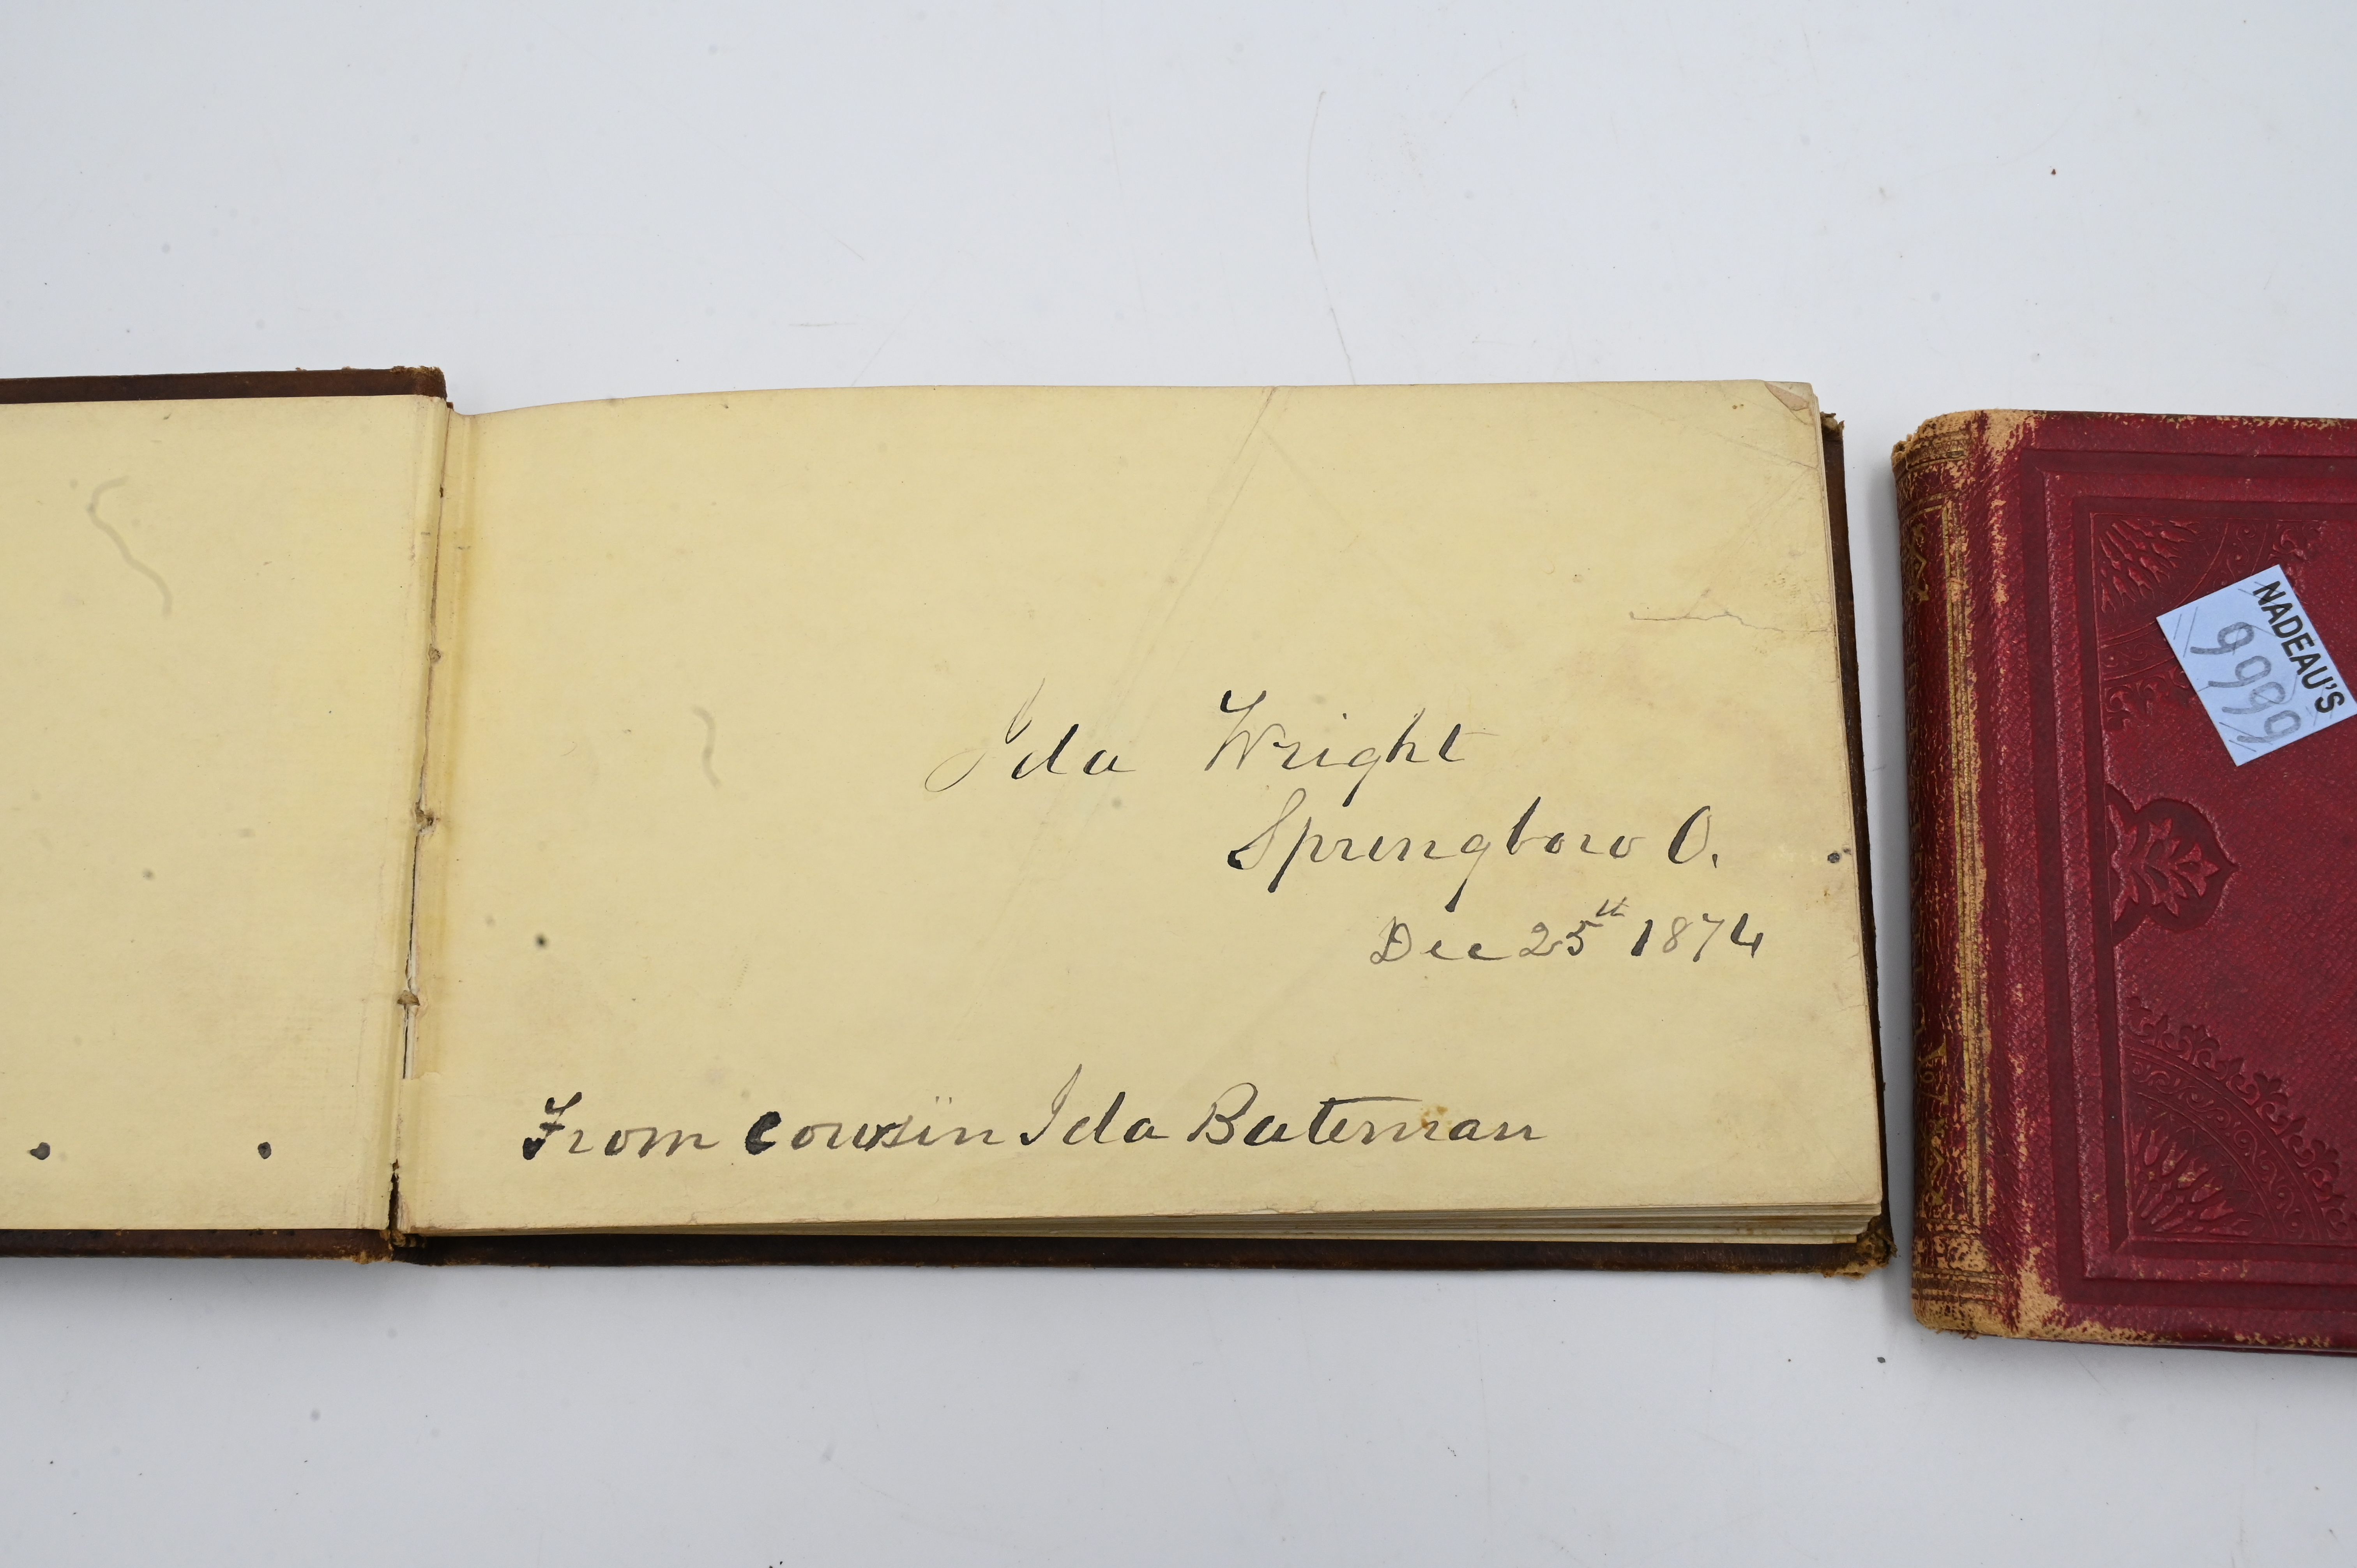 Ida Wright
Springboro O.
Dec 25th 1874
From cousin Ida Bateman
NADEAU'S